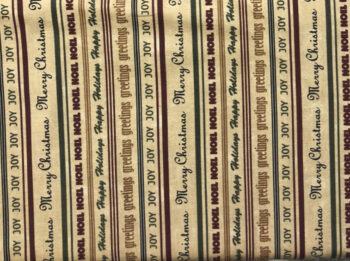 JOY JOY JOY JOY JOY JOY JOY JOY JOY JOY
Merry Christmas Merry Christmas Merry Christmas
NOEL NOEL NOEL NOEL NOEL NOEL NOEL NOEL NOEL
Happy Holidays Happy Holidays Happy Holidays
greetings greetings greetings greetings greetings
JOY JOY JOY JOY JOY JOY JOY JOY JOY JOY
Merry Christmas Merry Christmas Merry Christmas
NOEL NOEL NOEL NOEL NOEL NOEL NOEL NOEL NOEL
Happy Holidays Happy Holidays Happy Holidays
greetings greetings greetings greetings greetings
JOY JOY JOY JOY JOY JOY JOY JOY JOY JOY
Merry Christmas Merry Christmas Merry Christmas
NOEL NOEL NOEL NOEL NOEL NOEL NOEL NOEL NOEL